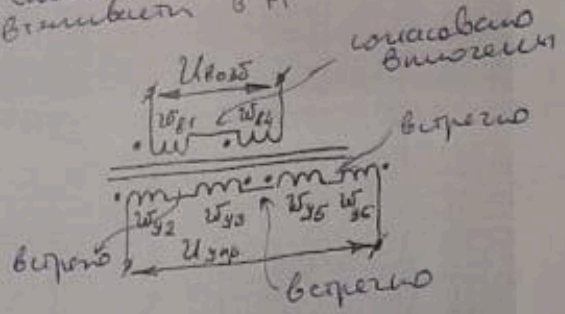 согласовано
включены
U возб
W в1 W в4
встречно
W y2 W y3 W y5 W y6
встречно
U упр
встречно